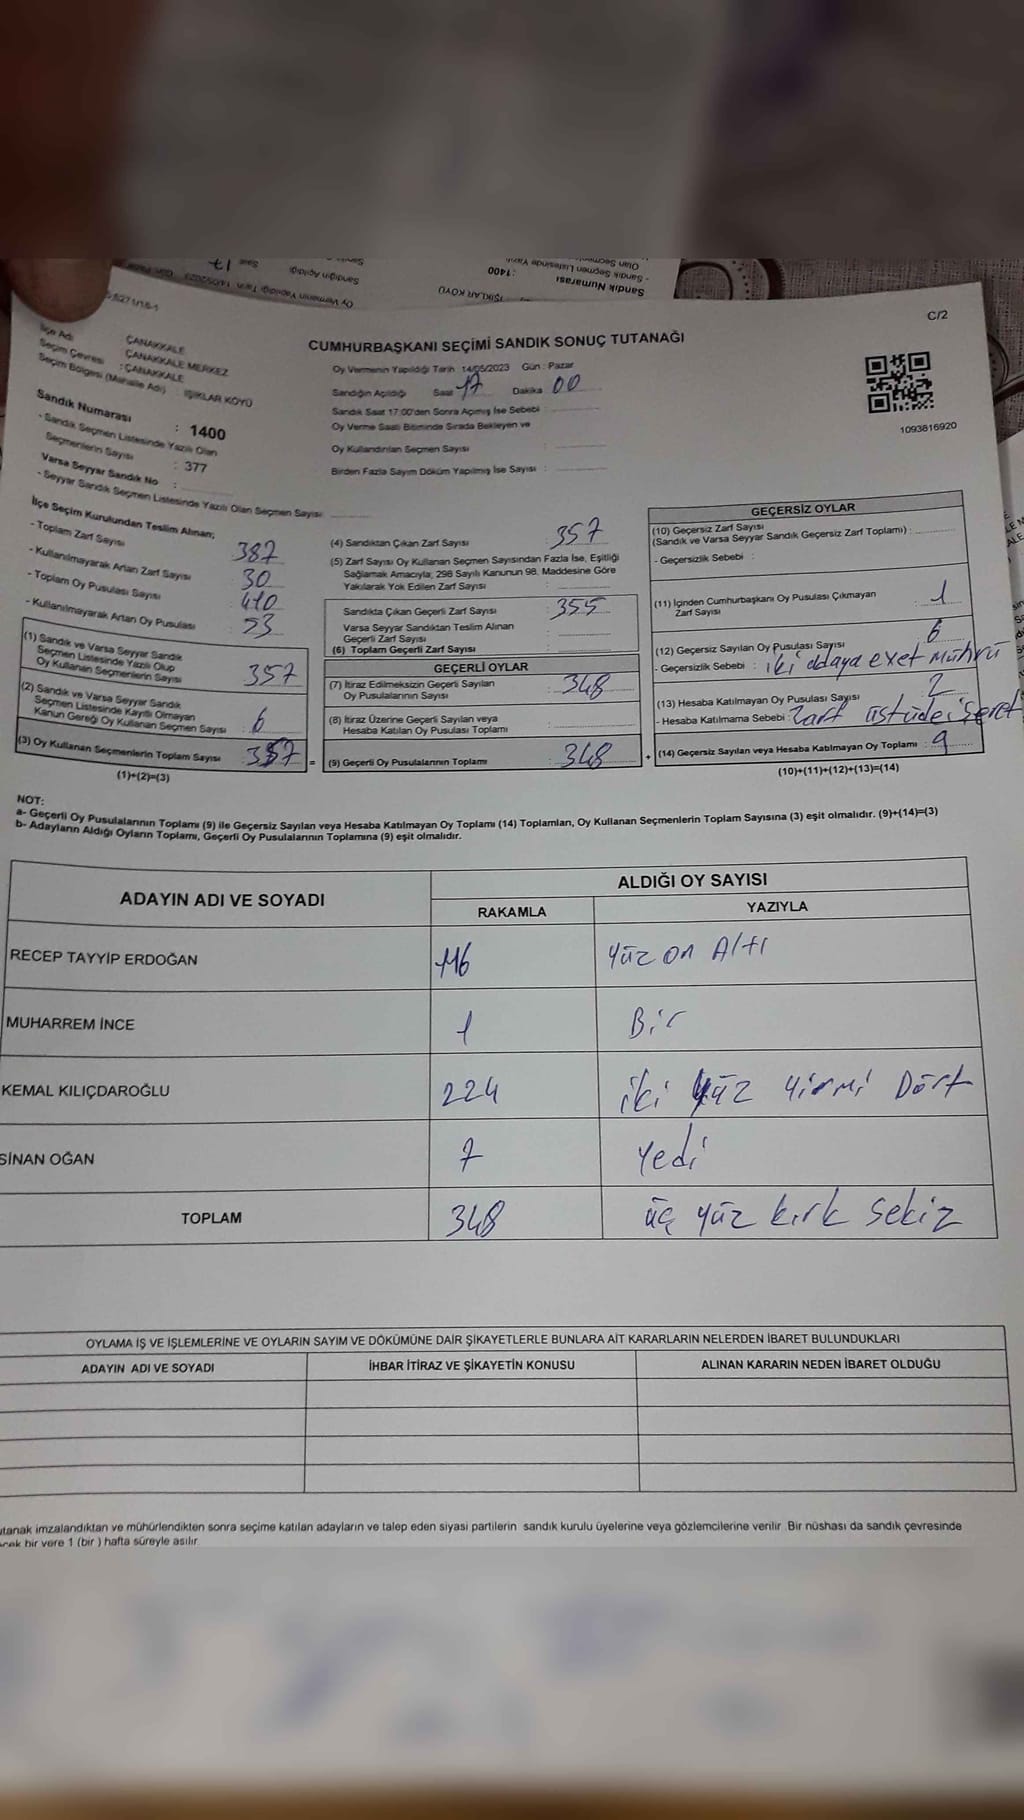 C/2
CUMHURBAŞKANI SEÇİMİ SANDIK SONUÇ TUTANAĞI
İlçe Adı ÇANAKKALE
Seçim Çevresi ÇANAKKALE MERKEZ
: ÇANAKKALE
Seçim Bölgesi (Mahalle Adı) IŞIKLAR KÖYÜ
Sandık Numarası : 1400
- Sandık Seçmen Listesinde Yazılı Olan
Seçmenlerin Sayısı : 377
Varsa Seyyar Sandık No :
- Seyyar Sandık Seçmen Listesinde Yazılı Olan Seçmen Sayısı
Oy Vermenin Yapıldığı Tarih 14/05/2023 Gün : Pazar
Sandığın Açıldığı Saat 17 Dakika 00
Sandık Saat 17:00'den Sonra Açımış İse Sebebi :
Oy Verme Saati Bitiminde Sırada Bekleyen ve
Oy Kullandırılan Seçmen Sayısı :
Birden Fazla Sayım Döküm Yapılmış İse Sayısı :
1093816920
İlçe Seçim Kurulundan Teslim Alınan;
- Toplam Zarf Sayısı 387
- Kullanılmayarak Artan Zarf Sayısı 30
- Toplam Oy Pusulası Sayısı 410
- Kullanılmayarak Artan Oy Pusulası 53
(1) Sandık ve Varsa Seyyar Sandık
Seçmen Listesinde Yazılı Olup
Oy Kullanan Seçmenlerin Sayısı 357
(2) Sandık ve Varsa Seyyar Sandık
Seçmen Listesinde Kayıtlı Olmayan
Kanun Gereği Oy Kullanan Seçmen Sayısı : 6
(3) Oy Kullanan Seçmenlerin Toplam Sayısı : 357 =
(1)+(2)=(3)
(4) Sandıktan Çıkan Zarf Sayısı 357
(5) Zarf Sayısı Oy Kullanan Seçmen Sayısından Fazla İse, Eşitliği
Sağlamak Amacıyla; 298 Sayılı Kanunun 98. Maddesine Göre
Yakılarak Yok Edilen Zarf Sayısı :
Sandıkta Çıkan Geçerli Zarf Sayısı : 355
Varsa Seyyar Sandıktan Teslim Alınan
Geçerli Zarf Sayısı :
(6) Toplam Geçerli Zarf Sayısı :
GEÇERLİ OYLAR
(7) İtiraz Edilmeksizin Geçerli Sayılan
Oy Pusulalarının Sayısı : 348
(8) İtiraz Üzerine Geçerli Sayılan veya
Hesaba Katılan Oy Pusulası Toplamı :
(9) Geçerli Oy Pusulalarının Toplamı : 348 +
GEÇERSİZ OYLAR
(10) Geçersiz Zarf Sayısı
(Sandık ve Varsa Seyyar Sandık Geçersiz Zarf Toplamı) :
- Geçersizlik Sebebi :
(11) İçinden Cumhurbaşkanı Oy Pusulası Çıkmayan
Zarf Sayısı : 1
(12) Geçersiz Sayılan Oy Pusulası Sayısı 6
- Geçersizlik Sebebi : iki adaya evet mührü
(13) Hesaba Katılmayan Oy Pusulası Sayısı 2
- Hesaba Katılmama Sebebi : Zarf üstüde işeret
(14) Geçersiz Sayılan veya Hesaba Katılmayan Oy Toplamı : 9
(10)+(11)+(12)+(13)=(14)
NOT:
a- Geçerli Oy Pusulalarının Toplamı (9) ile Geçersiz Sayılan veya Hesaba Katılmayan Oy Toplamı (14) Toplamları, Oy Kullanan Seçmenlerin Toplam Sayısına (3) eşit olmalıdır. (9)+(14)=(3)
b- Adayların Aldığı Oyların Toplamı, Geçerli Oy Pusulalarının Toplamına (9) eşit olmalıdır.
ADAYIN ADI VE SOYADI ALDIĞI OY SAYISI
RAKAMLA YAZIYLA
RECEP TAYYİP ERDOĞAN 116 Yüz on Altı
MUHARREM İNCE 1 Bir
KEMAL KILIÇDAROĞLU 224 iki yüz yirmi Dört
SİNAN OĞAN 7 Yedi
TOPLAM 348 üç yüz kırk sekiz
OYLAMA İŞ VE İŞLEMLERİNE VE OYLARIN SAYIM VE DÖKÜMÜNE DAİR ŞİKAYETLERLE BUNLARA AİT KARARLARIN NELERDEN İBARET BULUNDUKLARI
ADAYIN ADI VE SOYADI İHBAR İTİRAZ VE ŞİKAYETİN KONUSU ALINAN KARARIN NEDEN İBARET OLDUĞU
utanak imzalandıktan ve mühürlendikten sonra seçime katılan adayların ve talep eden siyasi partilerin sandık kurulu üyelerine veya gözlemcilerine verilir. Bir nüshası da sandık çevresinde
bir yere 1 (bir ) hafta süreyle asılır